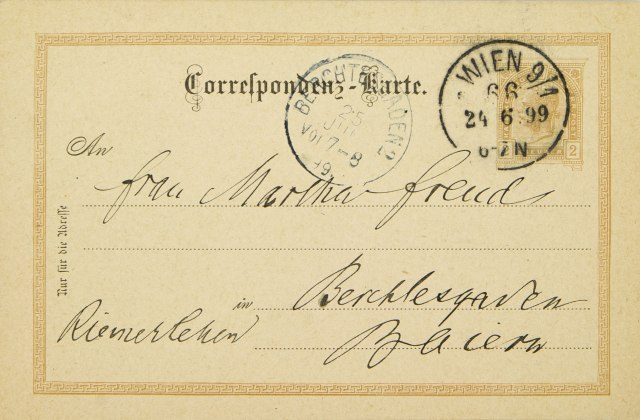 Correspondenz-Karte.
BERCHTESGADEN 2
25
JUN
VOR 7-8
WIEN 9/1
66
24 6 99
6-7N
2
An
Frau Martha Freud
Nur für die Adresse
in Berchtesgaden
Riemerlehen Baiern